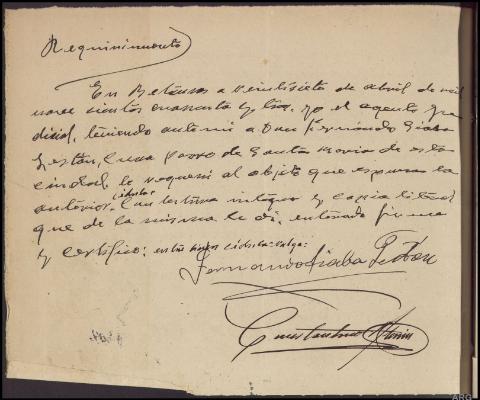 Requirimiento
En Betanzos a veintisiete de abril de mil
nove cientos cuarenta y tres, yo el agente ju
dicial, teniendo ante mi a Don Fernando
Cura Parro de Santa Maria de esta
ciudad, le requeri al objeto que expresa la
cédula
anterior. Con lectura integra y copia literal
que de la misma le di, enterado firma
y certifico; entre lineas cédula-valga.
Fernando
ARG